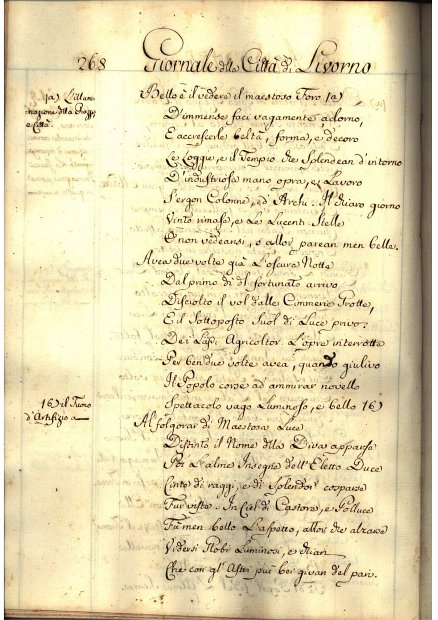 268 Giornale della Città di Livorno
1a) L'illuminazione della Piazza
e Città.
Bello è il vedere il maestoso Foro 1a)
D'immense faci vagamente adorno,
E accrescerle beltà, forma, e decoro
Le Loggie, e il Tempio che splendean d'intorno
D'industriosa mano opra, e Lavoro
S'ergon Colonne, ed Archi. Il chiaro giorno
Vinto rimase, e Le Lucenti Stelle
O non vedeansi, o allor parean men belle.
Avea due volte già L'oscura Notte
Dal primo dì del fortunato arrivo
Disciolto il vol dalle Cimmerie Grotte,
E il Sottoposto Suol di Luce privo.
Dei Lassi Agricoltor L'opre interrotte
Per ben due volte avea, quando giulivo
Il Popolo corse ad ammirar novello
Spettacolo vago Luminoso, e bello 16)
16) il Fuoco
d'Artifizio
Al folgorar di Maestosa Luce
Distinto il Nome della Diva apparse
Poi L'alme Insegne dell'Eletto Duce
Cinte di raggi, e di Splendor cosparse
Fur viste. In Ciel di Castore, e Polluce
Fu men bello L'aspetto, allor che alzarse
Vidersi Globi Luminosi, e
Che con gl'Astri più bei givan del pari.